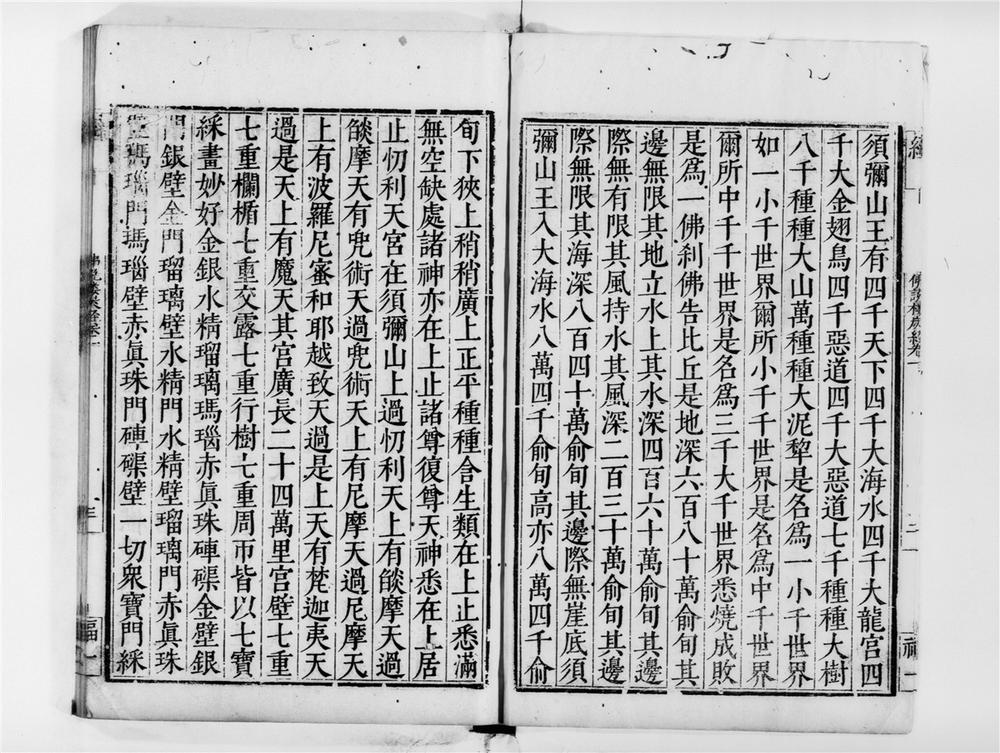 須彌山王有四千天下四千大海水四千大龍宮四
千大金翅鳥四千惡道四千大惡道七千種種大樹
八千種種大山萬種種大泥犂是名爲一小千世界
如一小千世界爾所小千千世界是名爲中千世界
爾所中千千世界是名爲三千大千世界悉燒成敗
是爲一佛刹佛告比丘是地深六百八十萬俞旬其
邊無限其地立水上其水深四百六十萬俞旬其邊
際無有限其風持水其風深二百三十萬俞旬其邊
際無限其海深八百四十萬俞旬其邊際無崖底須
彌山王入大海水八萬四千俞旬高亦八萬四千俞
旬下狹上稍稍廣上正平種種含生類在上止悉滿
無空缺處諸神亦在上止諸尊復尊天神悉在上居
止忉利天宮在須彌山上過忉利天上有燄摩天過
燄摩天有兜術天過兜術天上有尼摩天過尼摩天
上有波羅尼蜜和耶越致天過是上天有梵迦夷天
過是天上有魔天其宮廣長二十四萬里宮壁七重
七重欄楯七重交露七重行樹七重周帀皆以七寶
綵畫妙好金銀水精瑠璃瑪瑙赤眞珠硨磲金壁銀
門銀壁金門瑠璃壁水精門水精壁瑠璃門赤眞珠
壁瑪瑙門瑪瑙壁赤眞珠門硨磲壁一切衆寶門綵